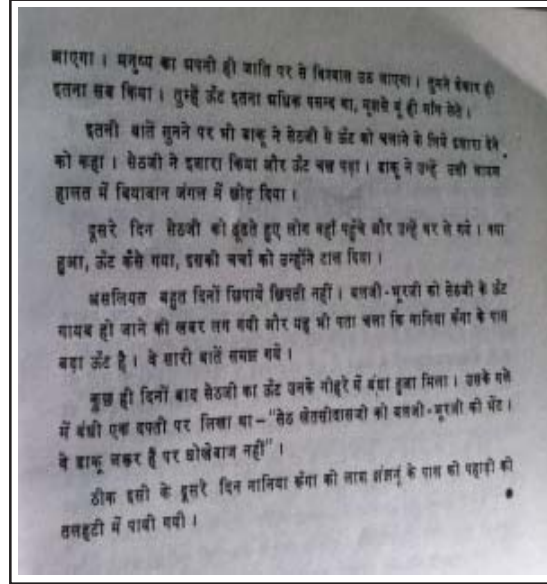 जाएगा । मनुष्य का अपनी ही जाति पर से विश्वास उठ जाएगा । तुमने बेकार ही
इतना सब किया । तुम्हें ऊँट इतना अधिक पसन्द था, मुझसे यूं ही माँग लेते ।
इतनी बातें सुनने पर भी डाकू ने सेठजी से ऊँट को चलाने के लिये इशारा देने
को कहा । सेठजी ने इशारा किया और ऊँट चल पड़ा । डाकू ने उन्हें उसी घायल
हालत में बियाबान जंगल में छोड़ दिया ।
दूसरे दिन सेठजी को ढूंढते हुए लोग वहाँ पहुँचे और उन्हें घर ले गये । क्या
हुआ, ऊँट कैसे गया, इसकी चर्चा को उन्होंने टाल दिया ।
असलियत बहुत दिनों छिपाये छिपती नहीं । बलजी-भूरजी को सेठजी के ऊँट
गायब हो जाने की खबर लग गयी और यह भी पता चला कि नानिया कँगा के पास
बड़ा ऊँट है । वे सारी बातें समझ गये ।
कुछ ही दिनों बाद सेठजी का ऊँट उनके नोहरे में बंधा हुआ मिला । उसके गले
में बंधी एक दफ्ती पर लिखा था – "सेठ खेतसीदासजी को बलजी-भूरजी की भेंट ।
वे डाकू जरूर हैं पर धोखेबाज नहीं" ।
ठीक इसी के दूसरे दिन नानिया कँगा की लाश झंझनूं के पास की पहाड़ी की
तलहटी में पायी गयी ।